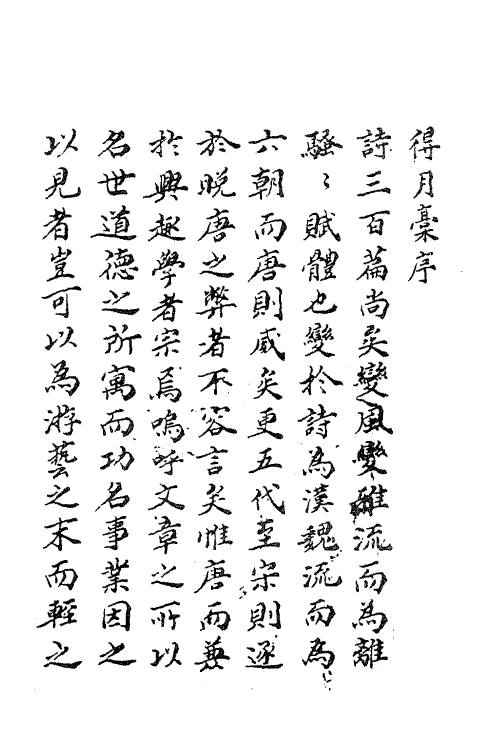 得月稾序
詩三百篇尚矣變風變雅流而為離
騷〻賦體也變於詩為漢魏流而為
六朝而唐則盛矣更五代至宋則逐
於晚唐之弊者不容言矣惟唐而兼
於興趣學者宗焉嗚呼文章之所以
名世道德之所寓而功名事業因之
以見者豈可以為游藝之末而輕之